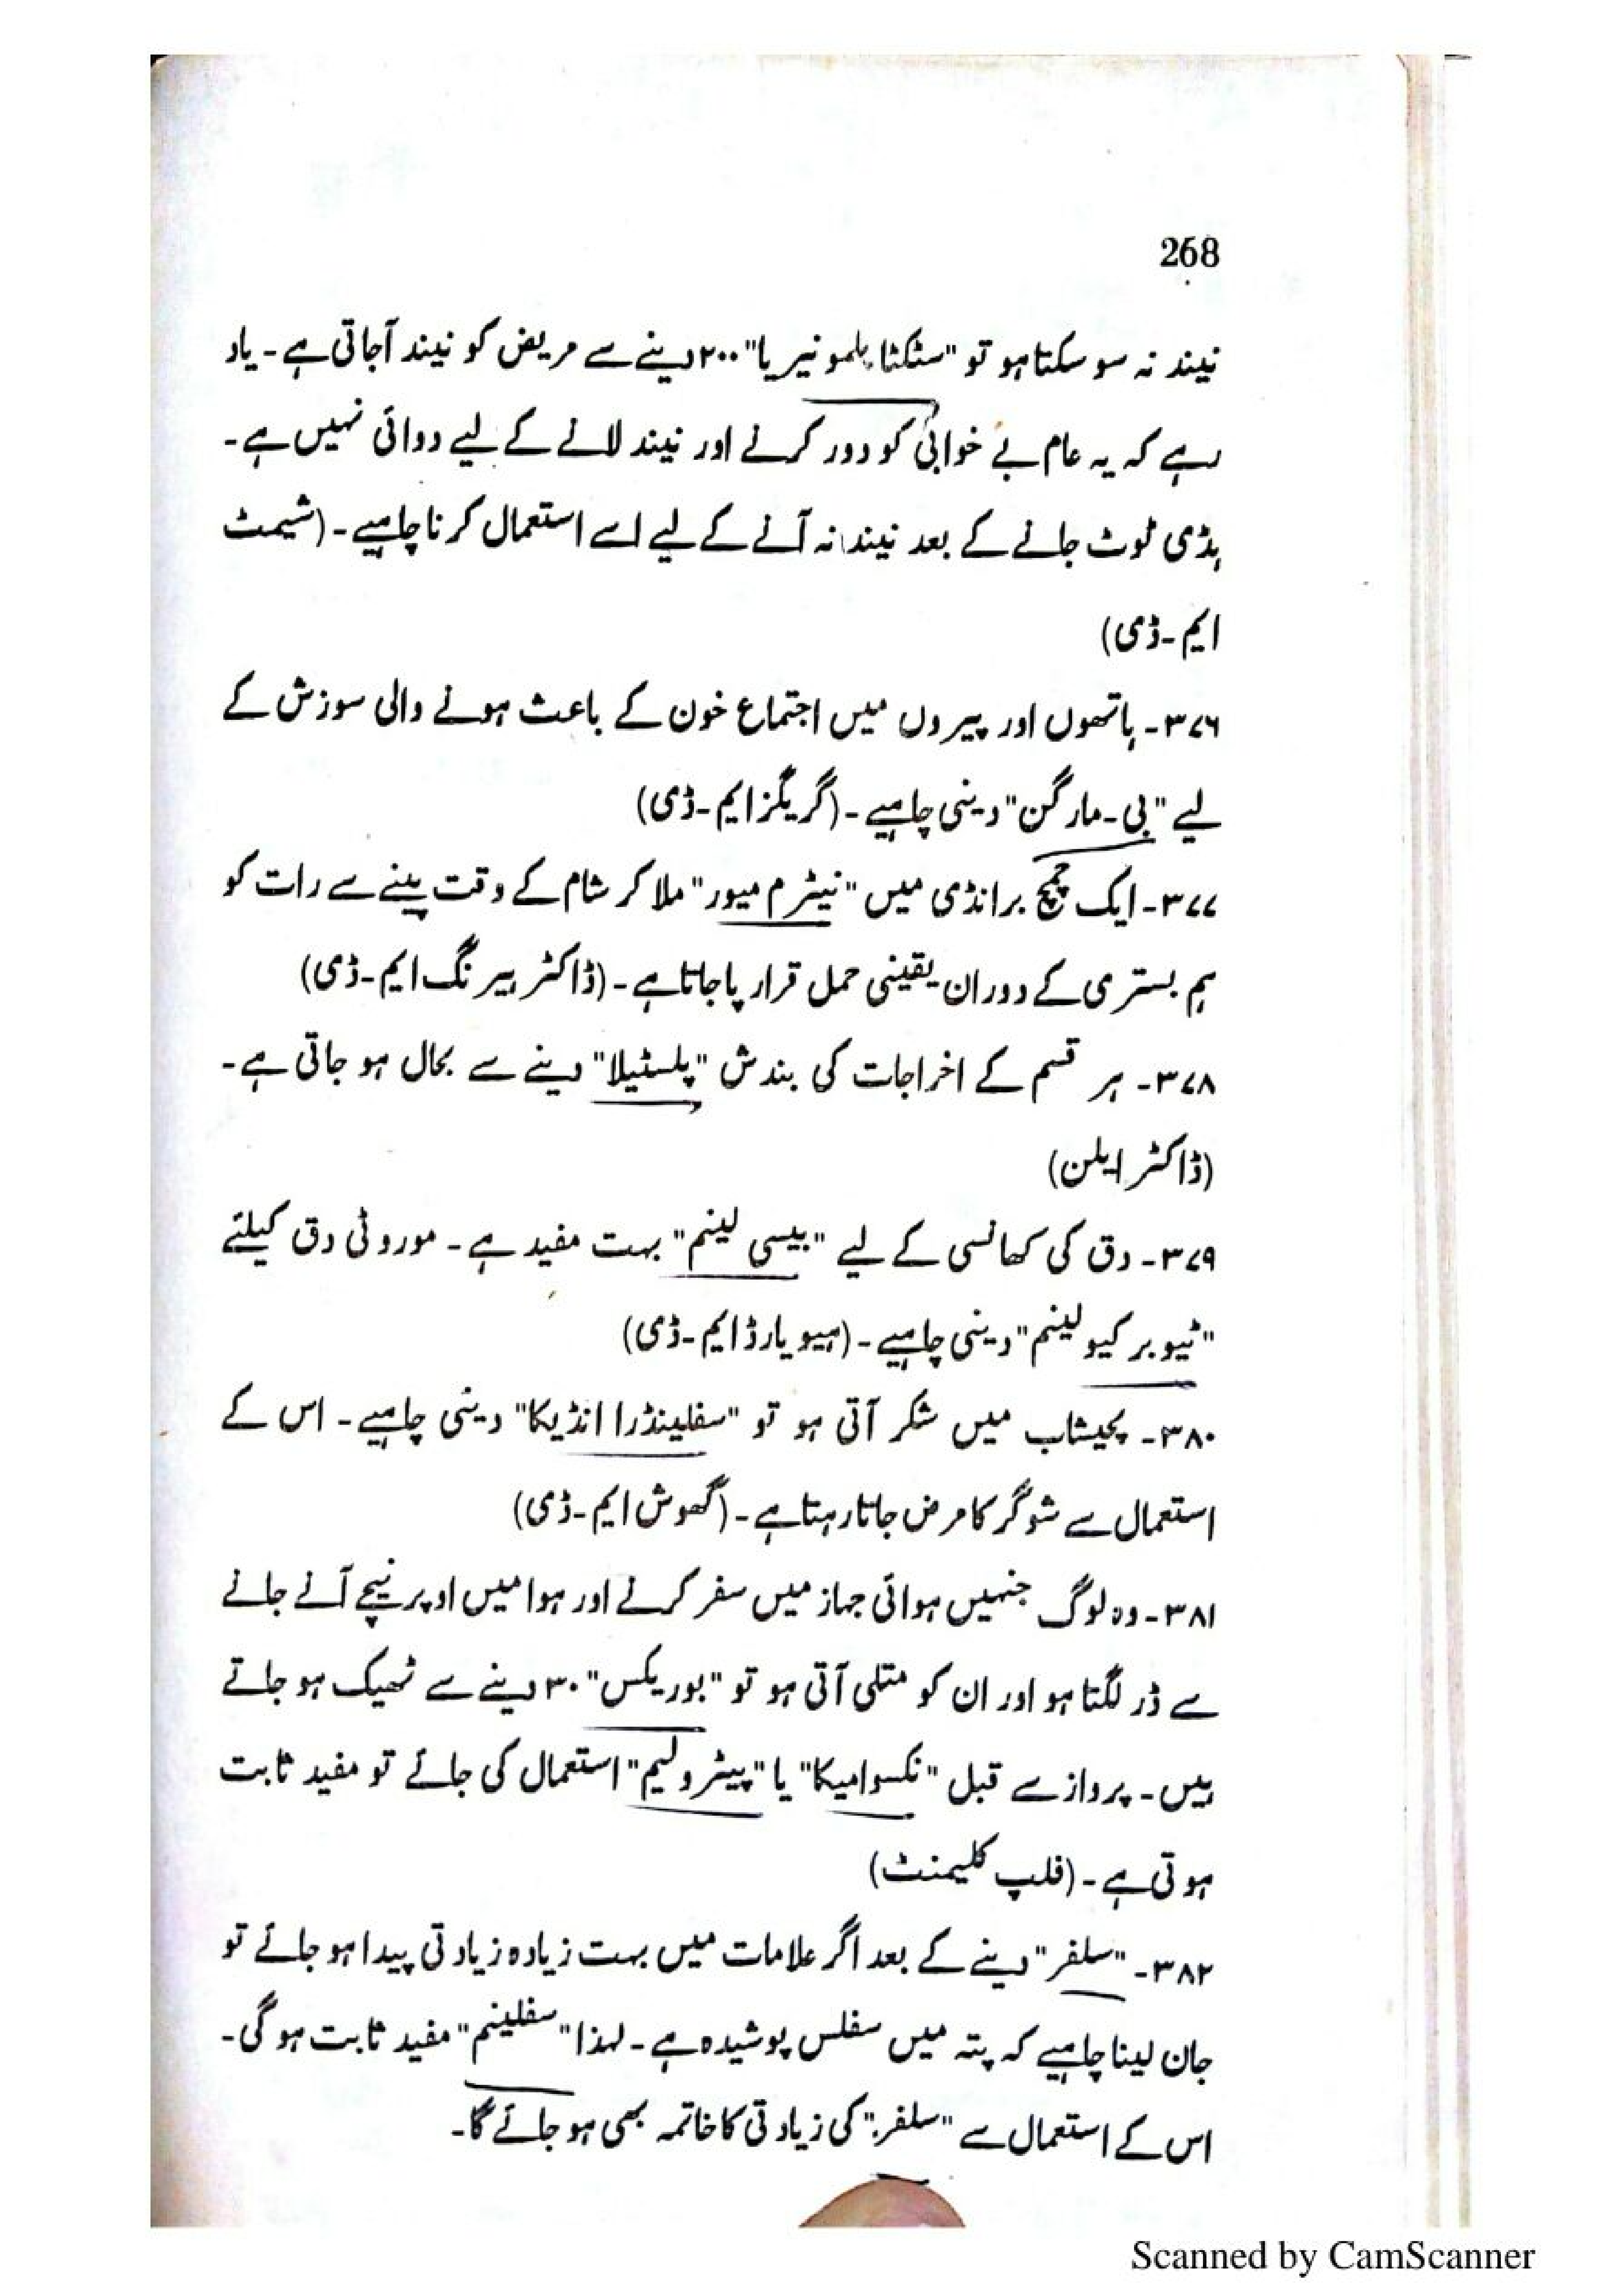 268
نیند نہ سو سکتا ہو تو "سٹکٹا پلمونیریا" ۲۰۰ دینے سے مریض کو نیند آجاتی ہے۔ یاد
رہے کہ یہ عام بے خوابی کو دور کرنے اور نیند لانے کے لیے دوائی نہیں ہے۔
ہڈی ٹوٹ جانے کے بعد نیند نہ آنے کے لیے اسے استعمال کرنا چاہیے۔ (شیمٹ
ایم۔ ڈی)
۳۷۶۔ ہاتھوں اور پیروں میں اجتماع خون کے باعث ہونے والی سوزش کے
لیے "بی۔ مارگن" دینی چاہیے۔ (گریگز ایم۔ ڈی)
۳۷۷۔ ایک چمچ برانڈی میں "نیٹرم میور" ملا کر شام کے وقت پینے سے رات کو
ہم بستری کے دوران یقینی حمل قرار پا جاتا ہے۔ (ڈاکٹر ہیرنگ ایم۔ ڈی)
۳۷۸۔ ہر قسم کے اخراجات کی بندش "پلسٹیلا" دینے سے بحال ہو جاتی ہے۔
(ڈاکٹر ایلن)
۳۷۹۔ دق کی کھانسی کے لیے "بیسی لینم" بہت مفید ہے۔ موروثی دق کیلئے
"ٹیوبرکیولینم" دینی چاہیے۔ (ہیویارڈ ایم۔ ڈی)
۳۸۰۔ پیشاب میں شکر آتی ہو تو "سفلینڈرا انڈیکا" دینی چاہیے۔ اس کے
استعمال سے شوگر کا مرض جاتا رہتا ہے۔ (گھوش ایم۔ ڈی)
۳۸۱۔ وہ لوگ جنہیں ہوائی جہاز میں سفر کرنے اور ہوا میں اوپر نیچے آنے جانے
سے ڈر لگتا ہو اور ان کو متلی آتی ہو تو "بوریکس" ۳۰ دینے سے ٹھیک ہو جاتے
ہیں۔ پرواز سے قبل "نکسوامیکا" یا "پیٹرولیم" استعمال کی جائے تو مفید ثابت
ہوتی ہے۔ (فلپ کلیمنٹ)
۳۸۲۔ "سلفر" دینے کے بعد اگر علامات میں بہت زیادہ زیادتی پیدا ہو جائے تو
جان لینا چاہیے کہ پتہ میں سفلس پوشیدہ ہے۔ لہذا "سفلینم" مفید ثابت ہو گی۔
اس کے استعمال سے "سلفر" کی زیادتی کا خاتمہ بھی ہو جائے گا۔
Scanned by CamScanner